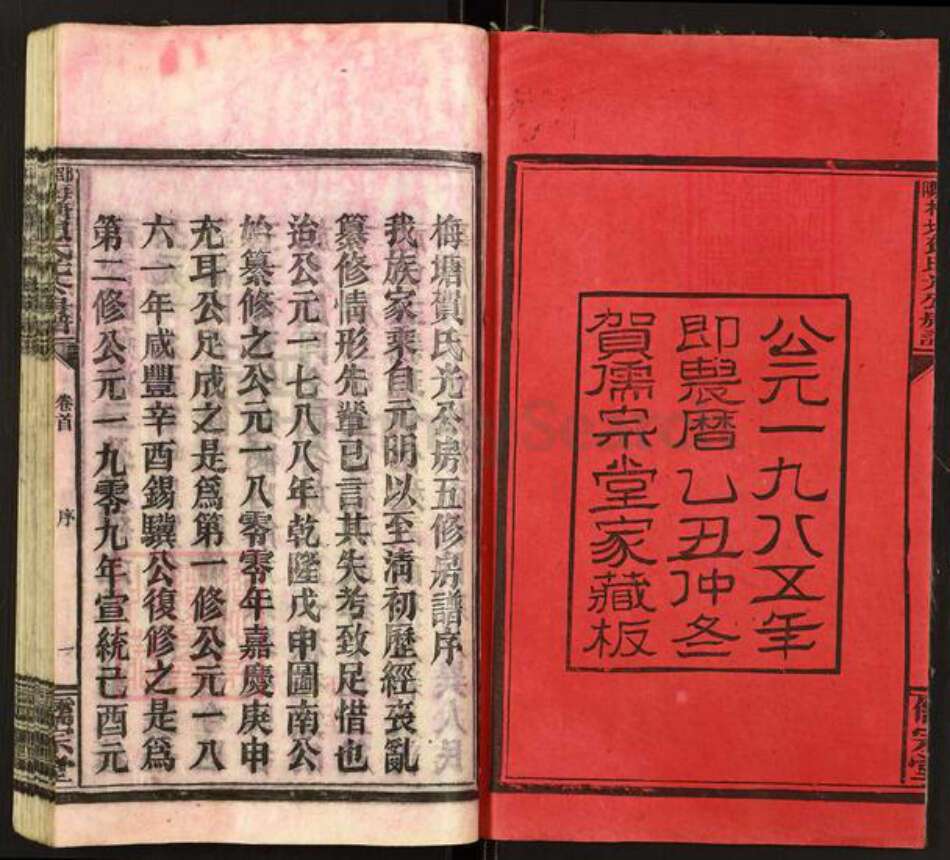 公元一九八五年
即農曆乙丑仲冬
賀儒宗堂家藏板
儒宗堂
梅塘賀氏光公房五修房譜序
我族家乘自元明以至清初歷經喪亂
纂修情形先輩已言其失考致足惜也
治公元一七八八年乾隆戊申圖南公
始纂修之公元一八零零年嘉慶庚申
充耳公足成之是爲第一修公元一八
六一年咸豐辛酉錫驥公復修之是爲
第二修公元一九零九年宣統己酉元
卷首
序
一
儒宗堂